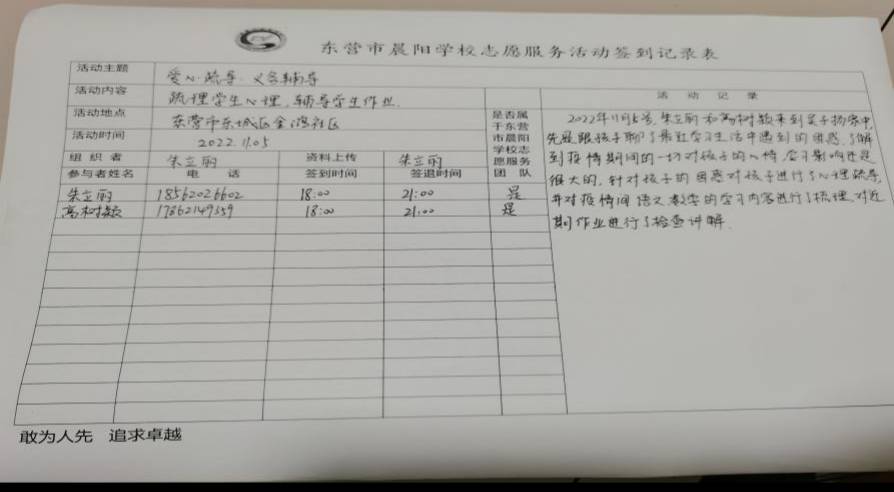 东营市晨阳学校志愿服务活动签到记录表
活动主题 爱心疏导 义务辅导
活动内容 疏理学生心理,辅导学生作业.
活动地点 东营市东城区金湾社区
活动时间 2022.11.05
组织者 朱立丽 资料上传 朱立丽
参与者姓名 电话 签到时间 签退时间
是否属
于东营
市晨阳
学校志
愿服务
团队
朱立丽 18562026602 18:00 21:00 是
高树颖 17862149559 18:00 21:00 是
活动记录
2022年11月5号,朱立丽和高树颖来到吴子扬家中,
先是跟孩子聊了最近学习生活中遇到的困惑,了解
到疫情期间的一切对孩子的心情,学习影响还是
很大的,针对孩子的困惑对孩子进行了心理疏导,
并对疫情间语文数学的学习内容进行了梳理,对近
期作业进行了检查讲解.
敢为人先 追求卓越